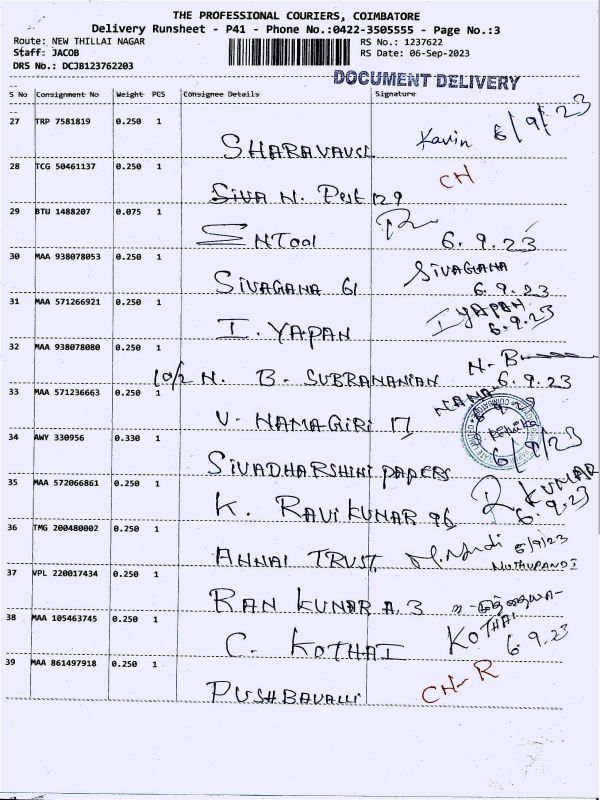 THE PROFESSIONAL COURIERS, COIMBATORE
Delivery Runsheet - P41 - Phone No.:0422-3505555 - Page No.:3
Route: NEW THILLAI NAGAR RS No.: 1237622
Staff: JACOB RS Date: 06-Sep-2023
DRS No.: DCJB123762203
DOCUMENT DELIVERY
S No Consignment No Weight PCS Consignee Details Signature
27 TRP 7581819 0.250 1 Kavin 6/9/23
28 TCG 50461137 0.250 1 CH
SIVA N. 129
29 BTU 1488207 0.075 1
SNTOOl 6.9.23
30 MAA 938078053 0.250 1 SIVAGANA
SIVAGANA 61 6.9.23
31 MAA 571266921 0.250 1 I YAPAN
I. YAPAN 6.9.23
32 MAA 938078080 0.250 1 N-B
10/2 N. B- SUBRANANIAN 6.9.23
33 MAA 571236663 0.250 1 NAMA
V- NAMAGIRI 17
34 AWY 330956 0.330 1 6/9/23
SIVADHARSHINI PAPERS
35 MAA 572066861 0.250 1 R KUMAR
K. RAVI KUNAR 96 6.9.23
36 TMG 200480002 0.250 1 6/9/23
ANNAI TRUST MUTHUPANDI
37 VPL 220017434 0.250 1
RAN KUNAR A. 3
38 MAA 105463745 0.250 1 KOTHAI
C. KOTHAI 6.9.23
39 MAA 861497918 0.250 1 CH-R
PUSHBAVALLI